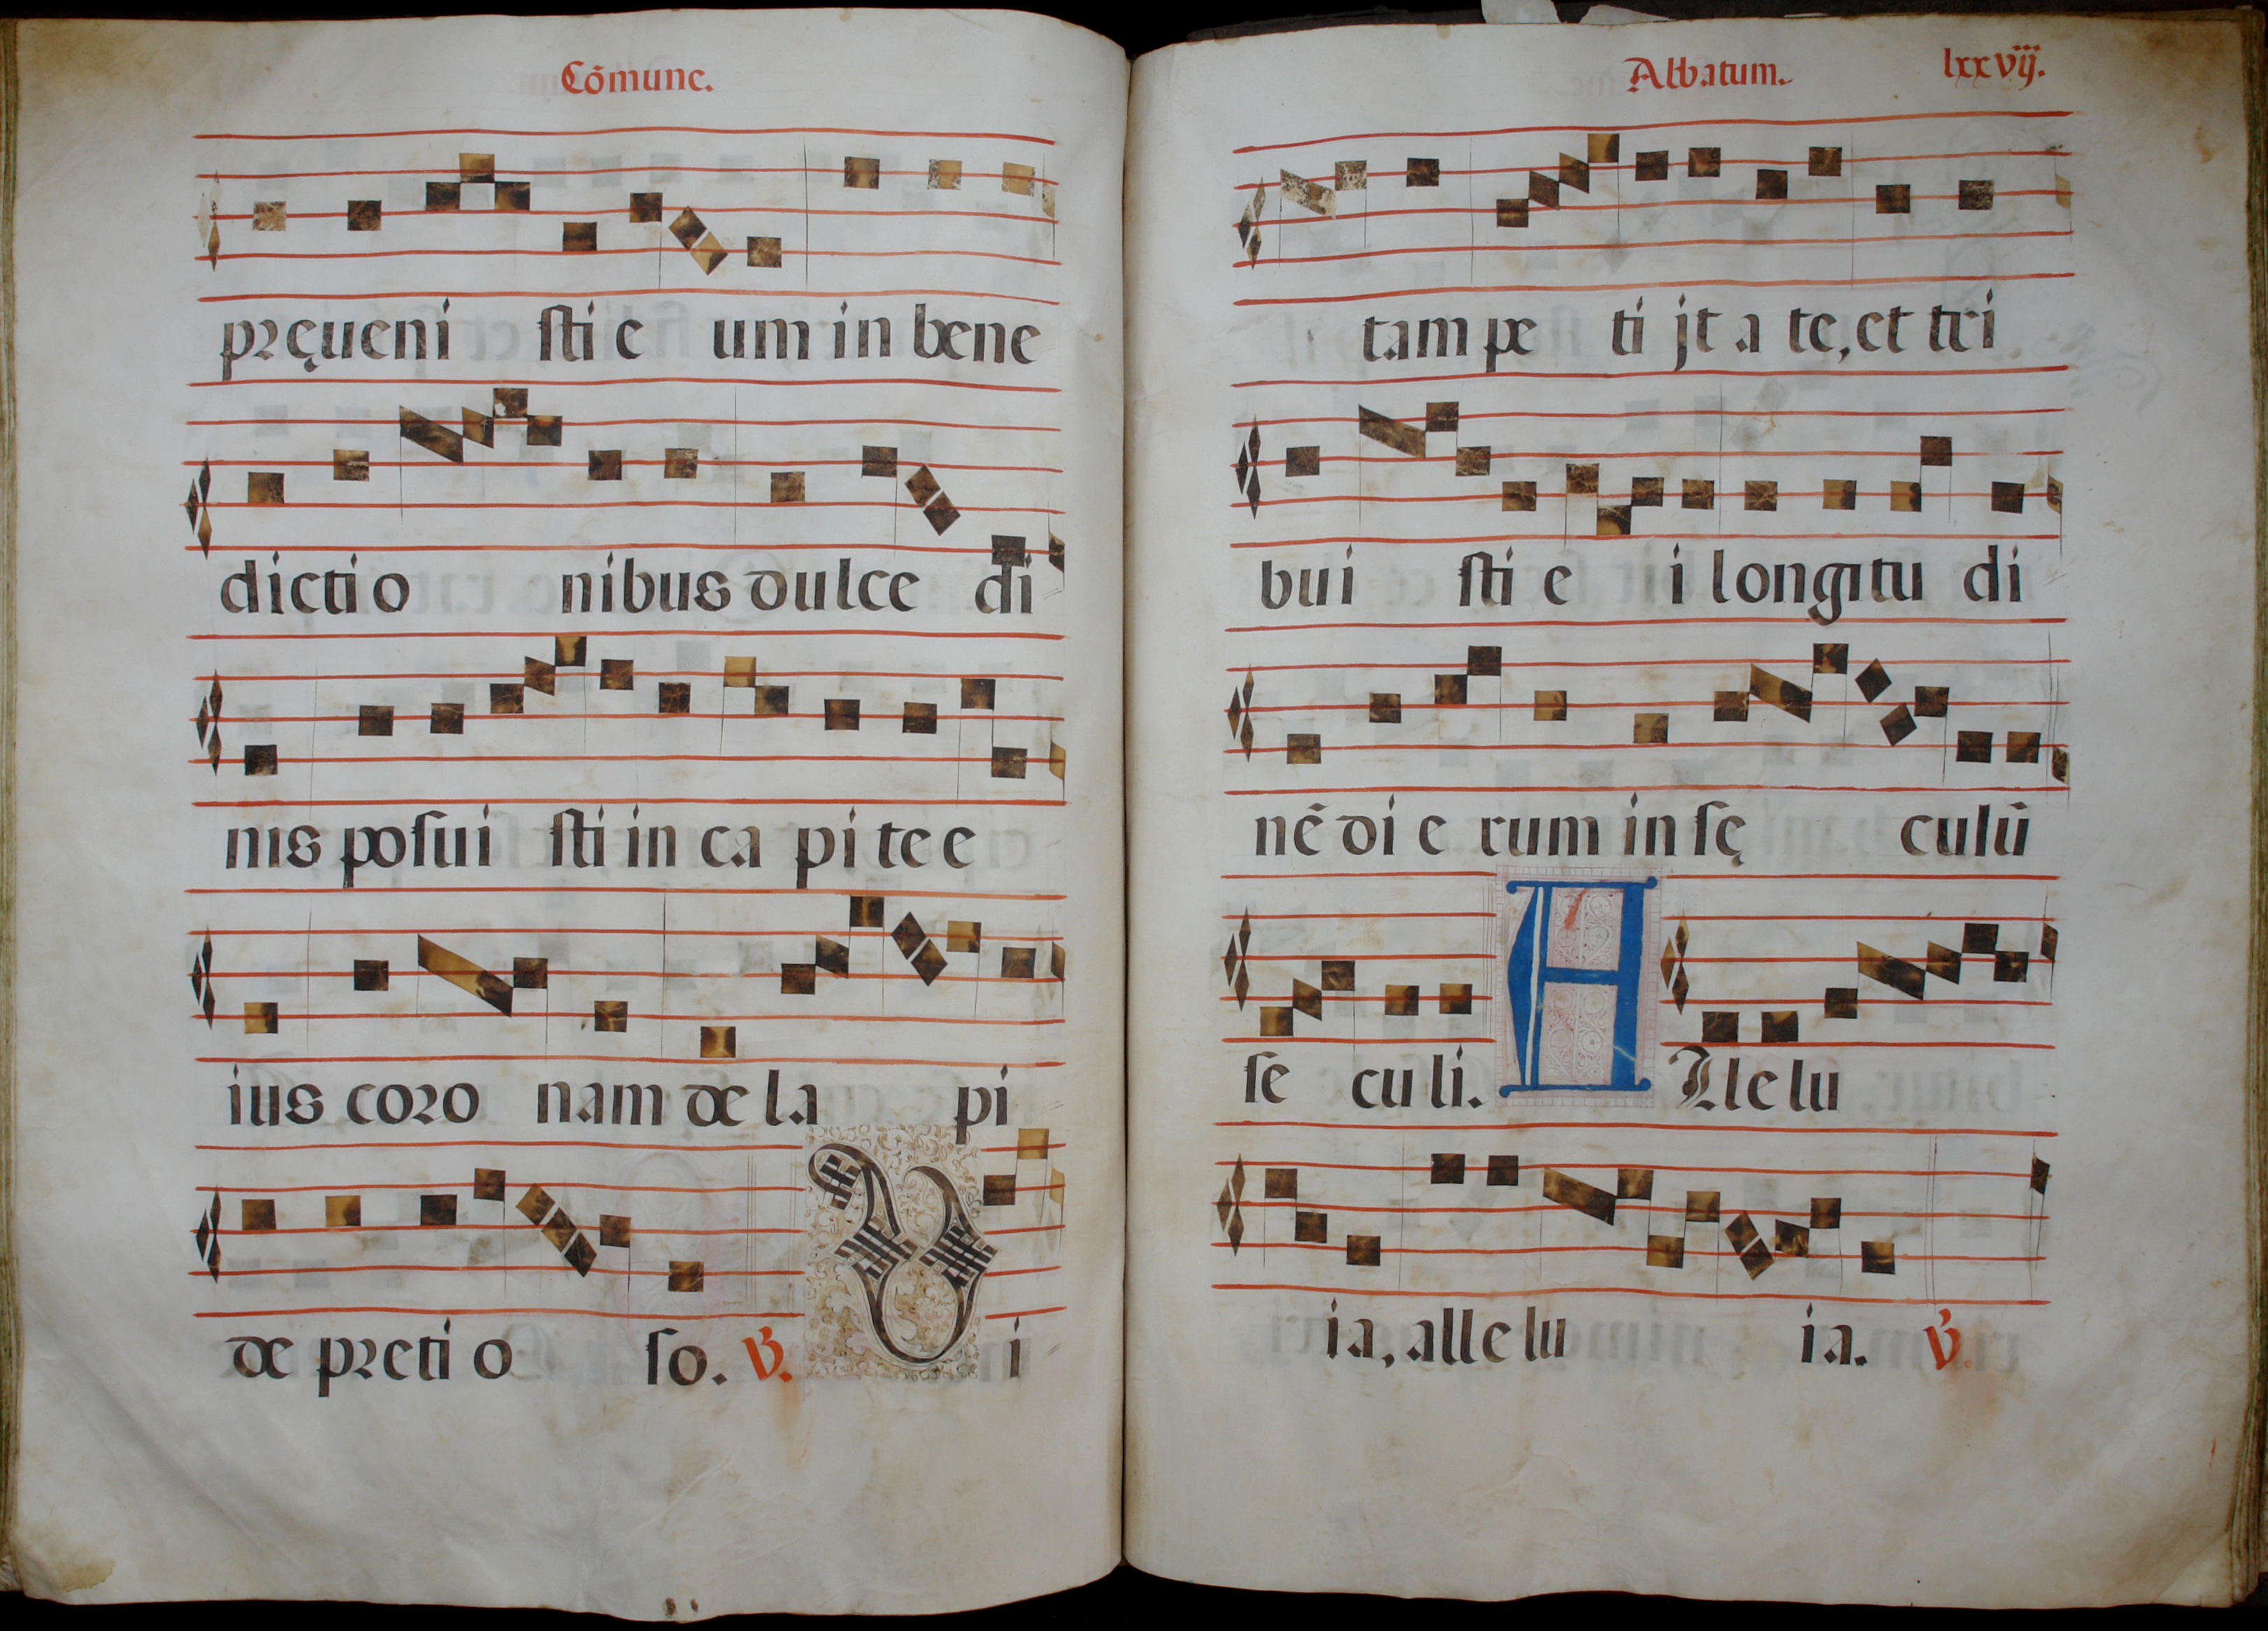 Cõmune.
pręueni sti e um in bene
dicti o nibus dulce di
nis posui sti in ca pi te e
ius coro nam de la pi
de preti o so. V. Vi i
Abbatum. lxxvij.
tam pe ti jt a te, et tri
bui sti e i longitu di
nẽ di e rum in sę culũ
se culi. A Lle lu
ia, alle lu ia. V.